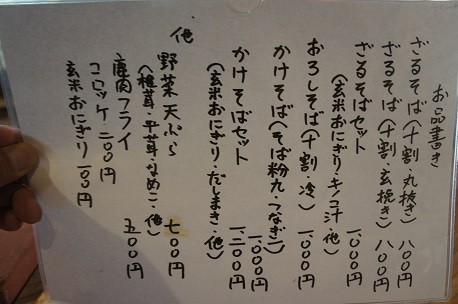 お品書き
ざるそば(十割・丸抜き) 八〇〇円
ざるそば(十割・玄挽き) 八〇〇円
ざるそばセット 一、〇〇〇円
(玄米おにぎり・キノコ汁・他)
おろしそば(十割 冷) 一、〇〇〇円
かけそば(そば粉九・つなぎ二) 一、〇〇〇円
かけそばセット 一、二〇〇円
(玄米おにぎり・だしまき・他)
他
野菜天ぷら 七〇〇円
(椎茸・平茸・なめこ・他)
鹿肉フライ 五〇〇円
コロッケ 二〇〇円
玄米おにぎり 一〇〇円